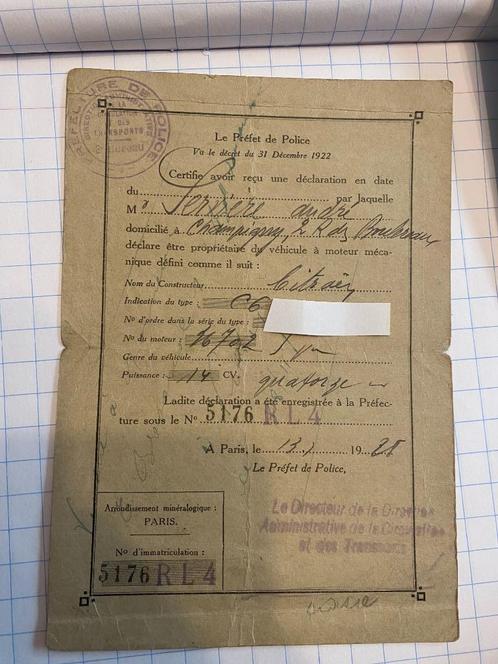 PREFECTURE DE POLICE
DIRECTION ADMINISTRATIVE
DE LA CIRCULATION
ET DES
TRANSPORTS
Bureau
Le Préfet de Police
Vu le décret du 31 Décembre 1922
Certifie avoir reçu une déclaration en date
du par laquelle
M André
domicilié à Champigny, 2 R des
déclare être propriétaire du véhicule à moteur méca-
nique défini comme il suit :
Nom du Constructeur Citroën
Indication du type : C6
No d'ordre dans la série du type :
No du moteur : 16702
Genre du véhicule
Puissance : 14 CV. quatorze
Ladite déclaration a été enregistrée à la Préfec-
ture sous le No 5176 RL4
A Paris, le 13 19 28
Le Préfet de Police,
Le Directeur de la Direction
Administrative de la Circulation
et des Transports
Arrondissement minéralogique :
PARIS.
No d'immatriculation :
5176 RL4